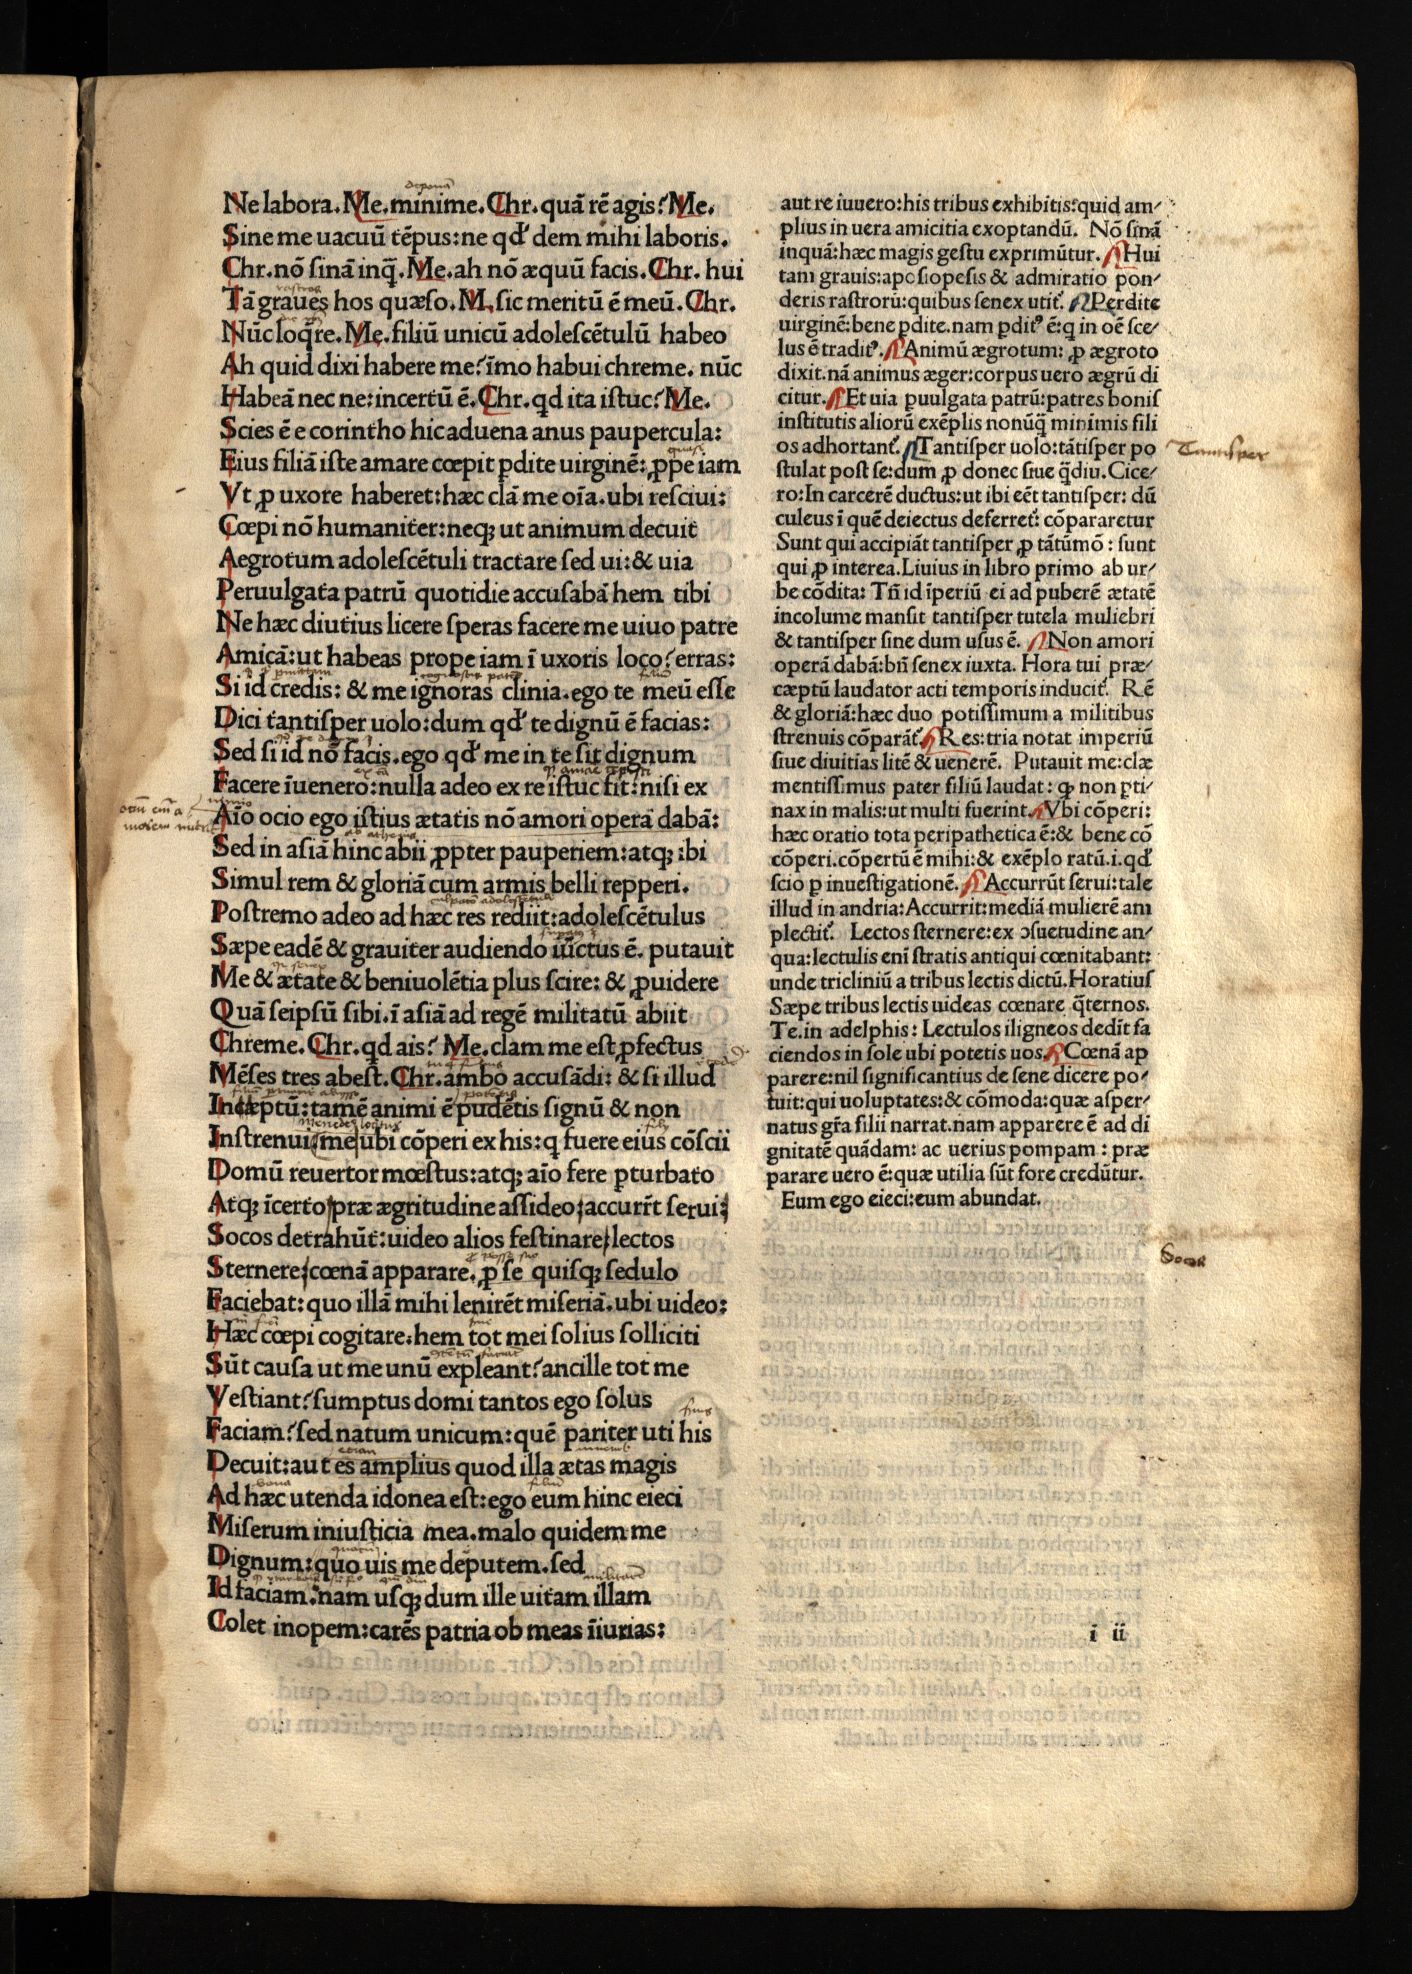 Ne labora. Me. minime. Chr. quā rē agis? Me.
Sine me uacuū tēpus: ne qđ dem mihi laboris.
Chr. nō ſinā inq̄. Me. ah nō æquū facis. Chr. hui
Tā graues hos quæſo. M. ſic meritū ē meū. Chr.
Nūc loq̄re. Me. filiū unicū adoleſcētulū habeo
Ah quid dixi habere me? īmo habui chreme. nūc
Habeā nec ne: incertū ē. Chr. qd ita iſtuc? Me.
Scies ē e corintho hic aduena anus paupercula:
Eius filiā iſte amare cœpit ꝑdite uirginē: ꝓpe iam
Vt ꝓ uxore haberet: hæc clā me oīa. ubi reſciui:
Cœpi nō humaniter: neqꝫ ut animum decuit
Aegrotum adoleſcētuli tractare ſed ui: & uia
Peruulgata patrū quotidie accuſabā hem tibi
Ne hæc diutius licere ſperas facere me uiuo patre
Amicā: ut habeas prope iam ī uxoris loco? erras:
Si id credis: & me ignoras clinia. ego te meū eſſe
Dici tantiſper uolo: dum qđ te dignū ē facias:
Sed ſi id nō facis. ego qđ me in te ſit dignum
Facere īuenero: nulla adeo ex re iſtuc fit: niſi ex
Aīo ocio ego iſtius ætatis nō amori operā dabā:
Sed in aſiā hinc abii ꝓpter pauperiem: atqꝫ ibi
Simul rem & gloriā cum armis belli repperi.
Poſtremo adeo ad hæc res rediit: adoleſcētulus
Sæpe eadē & grauiter audiendo uīctus ē. putauit
Me & ætate & beniuolētia plus ſcire: & ꝓuidere
Quā ſeipſū ſibi. ī aſiā ad regē militatū abiit
Chreme. Chr. qd ais? Me. clam me eſt ꝓfectus
Mēſes tres abeſt. Chr. ambo accuſādi: & ſi illud
Incæptū: tamē animi ē pudētis ſignū & non
Inſtrenui. me ubi cōperi ex his: q fuere eius cōſcii
Domū reuertor mœſtus: atqꝫ aīo fere ꝑturbato
Atqꝫ īcerto præ ægritudine aſſideo accurrt̄ ſerui:
Socos detrahūt: uideo alios feſtinare lectos
Sternere cœnā apparare. ꝓ ſe quiſqꝫ ſedulo
Faciebat: quo illā mihi lenirēt miſeriā. ubi uideo:
Hæc cœpi cogitare. hem tot mei ſolius ſolliciti
Sūt cauſa ut me unū expleant? ancille tot me
Veſtiant? ſumptus domi tantos ego ſolus
Faciam? ſed natum unicum: quē pariter uti his
Decuit: aut es amplius quod illa ætas magis
Ad hæc utenda idonea eſt: ego eum hinc eieci
Miſerum iniuſticia mea. malo quidem me
Dignum: quo uis me deputem. ſed
Id faciam. nam uſqꝫ dum ille uitam illam
Colet inopem: carēs patria ob meas īiurias:
aut re iuuero: his tribus exhibitis: quid am-
plius in uera amicitia exoptandū. Nō ſinā
inquā: hæc magis geſtu exprimūtur. Hui
tam grauis: apoſiopeſis & admiratio pon-
deris raſtrorū: quibus ſenex utit᷑. Perdite
uirginē: bene ꝑdite. nam ꝑditꝰ ē: q in oē ſce-
lus ē traditꝰ. Animū ægrotum: ꝓ ægroto
dixit. nā animus æger: corpus uero ægrū di
citur. Et uia puulgata patrū: patres boniſ
inſtitutis aliorū exēplis nonūq̄ minimis fili
os adhortant᷑. Tantiſper uolo: tātiſper po
ſtulat poſt ſe: dum ꝓ donec ſiue q̄diu. Cice-
ro: In carcerē ductus: ut ibi eēt tantiſper: dū
culeus ī quē deiectus deferret᷑: cōpararetur
Sunt qui accipiāt tantiſper ꝓ tātūmō: ſunt
qui ꝓ interea. Liuius in libro primo ab ur-
be cōdita: Tn̄ id īperiū ei ad puberē ætatē
incolume manſit tantiſper tutela muliebri
& tantiſper ſine dum uſus ē. Non amori
operā dabā: bn̄ ſenex iuxta. Hora tui præ-
cæptū laudator acti temporis inducit᷑. Rē
& gloriā: hæc duo potiſſimum a militibus
ſtrenuis cōparāt᷑. Res: tria notat imperiū
ſiue diuitias litē & uenerē. Putauit me: clæ
mentiſſimus pater filiū laudat: ꝙ non ꝑti-
nax in malis: ut multi fuerint. Vbi cōperi:
hæc oratio tota peripathetica ē: & bene cō
cōperi. cōpertū ē mihi: & exēplo ratū. i. qđ
ſcio ꝑ inueſtigationē. Accurrūt ſerui: tale
illud in andria: Accurrit: mediā mulierē am
plectit᷑. Lectos ſternere: ex ↄſuetudine an-
qua: lectulis enī ſtratis antiqui cœnitabant:
unde tricliniū a tribus lectis dictū. Horatiuſ
Sæpe tribus lectis uideas cœnare q̄ternos.
Te. in adelphis: Lectulos iligneos dedīt fa
ciendos in ſole ubi potetis uos. Cœnā ap
parere: nil ſignificantius de ſene dicere po-
tuit: qui uoluptates: & cōmoda: quæ aſper-
natus gr̄a filii narrat. nam apparere ē ad di
gnitatē quādam: ac uerius pompam: præ
parare uero ē: quæ utilia ſūt fore credūtur.
Eum ego eieci: eum abundat.
i ii
Tantiſper